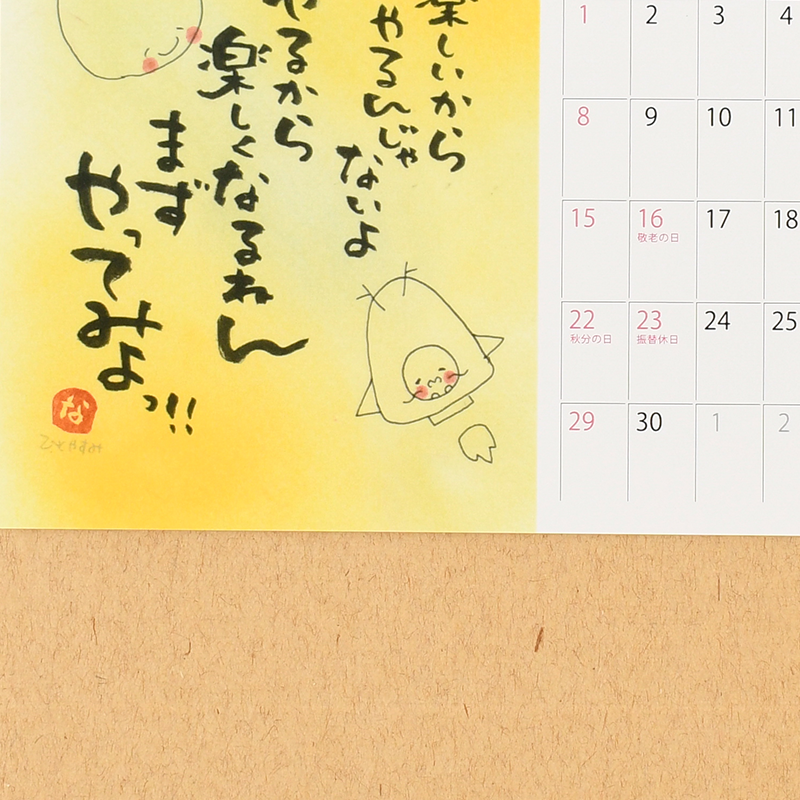 楽しいから
やるんじゃ
ないよ
やるから
楽しくなるねん
まず
やってみよっ!!
な
ひとやすみ
1 2 3 4
8 9 10 11
15 16 17 18
敬老の日
22 23 24 25
秋分の日 振替休日
29 30 1 2